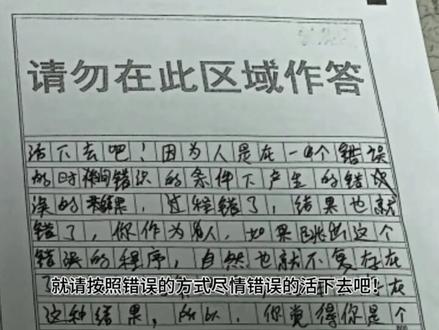 请勿在此区域作答
活下去吧！因为人是在一个错误
的时间错误的条件下产生的错
误的结果，过程错了，结果也就
错了，你作为人，如果跳出这个
错误的程序，自然也就不复存在
就请按照错误的方式尽情错误的活下去吧！
这种结果，所以，你觉得你是个